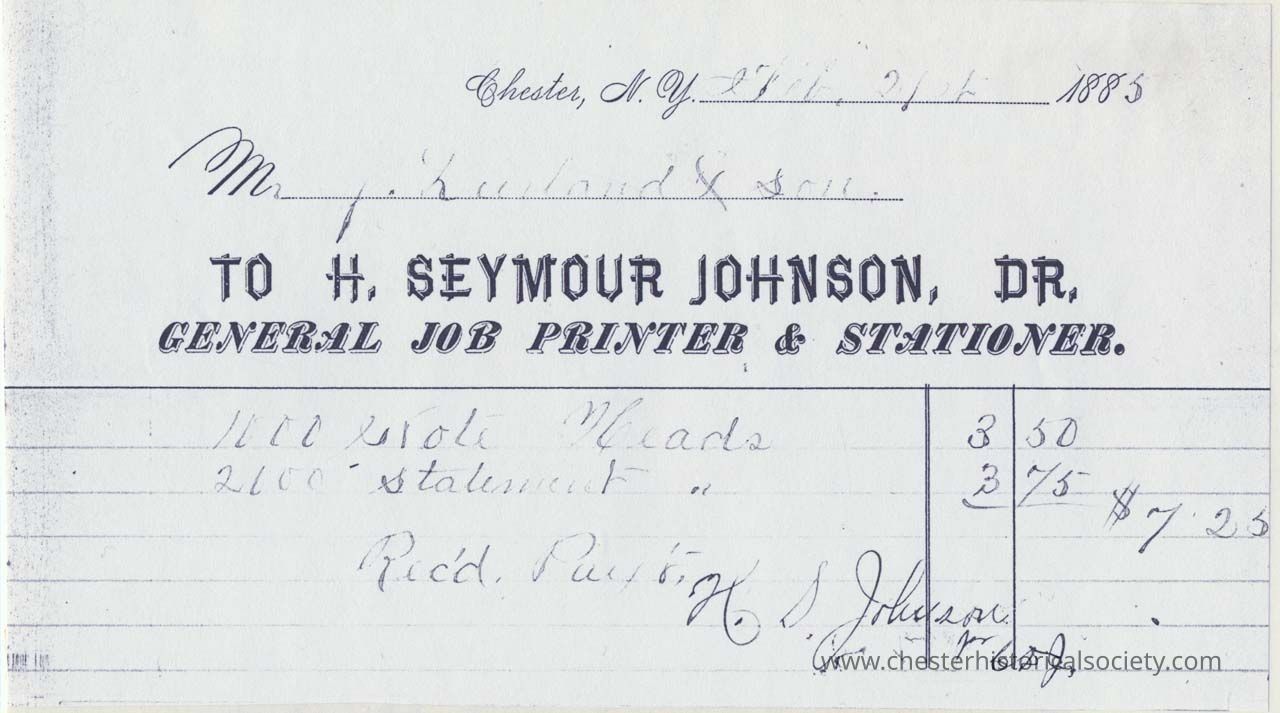 Chester, N. Y. Feb. 21st 1885
Mr J. Durland & Son.
TO H. SEYMOUR JOHNSON, DR.
GENERAL JOB PRINTER & STATIONER.
1000 Note Heads 3 50
Statement " 3 75 $7.25
Rec'd. Pay't.
H. S. Johnson
www.chesterhistoricalsociety.com